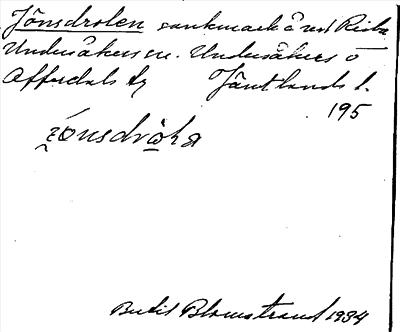 Jönsdrolen sankmark å rest Rista
Undersåkers sn. Undersåkers o
Offerdals tg Jämtlands l.
195
Bertil Blomstrand 1934